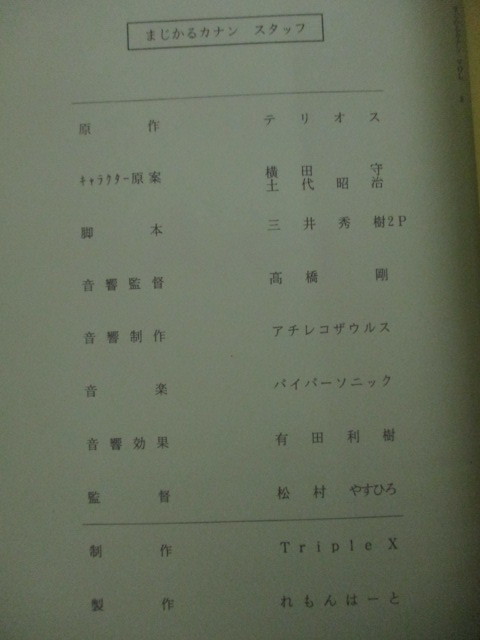 まじかるカナン スタッフ
原作 テリオス
ｷｬﾗｸﾀｰ原案 横田守
土代昭治
脚本 三井秀樹2P
音響監督 高橋剛
音響制作 アチレコザウルス
音楽 バイパーソニック
音響効果 有田利樹
監督 松村やすひろ
制作 TripleX
製作 れもんはーと